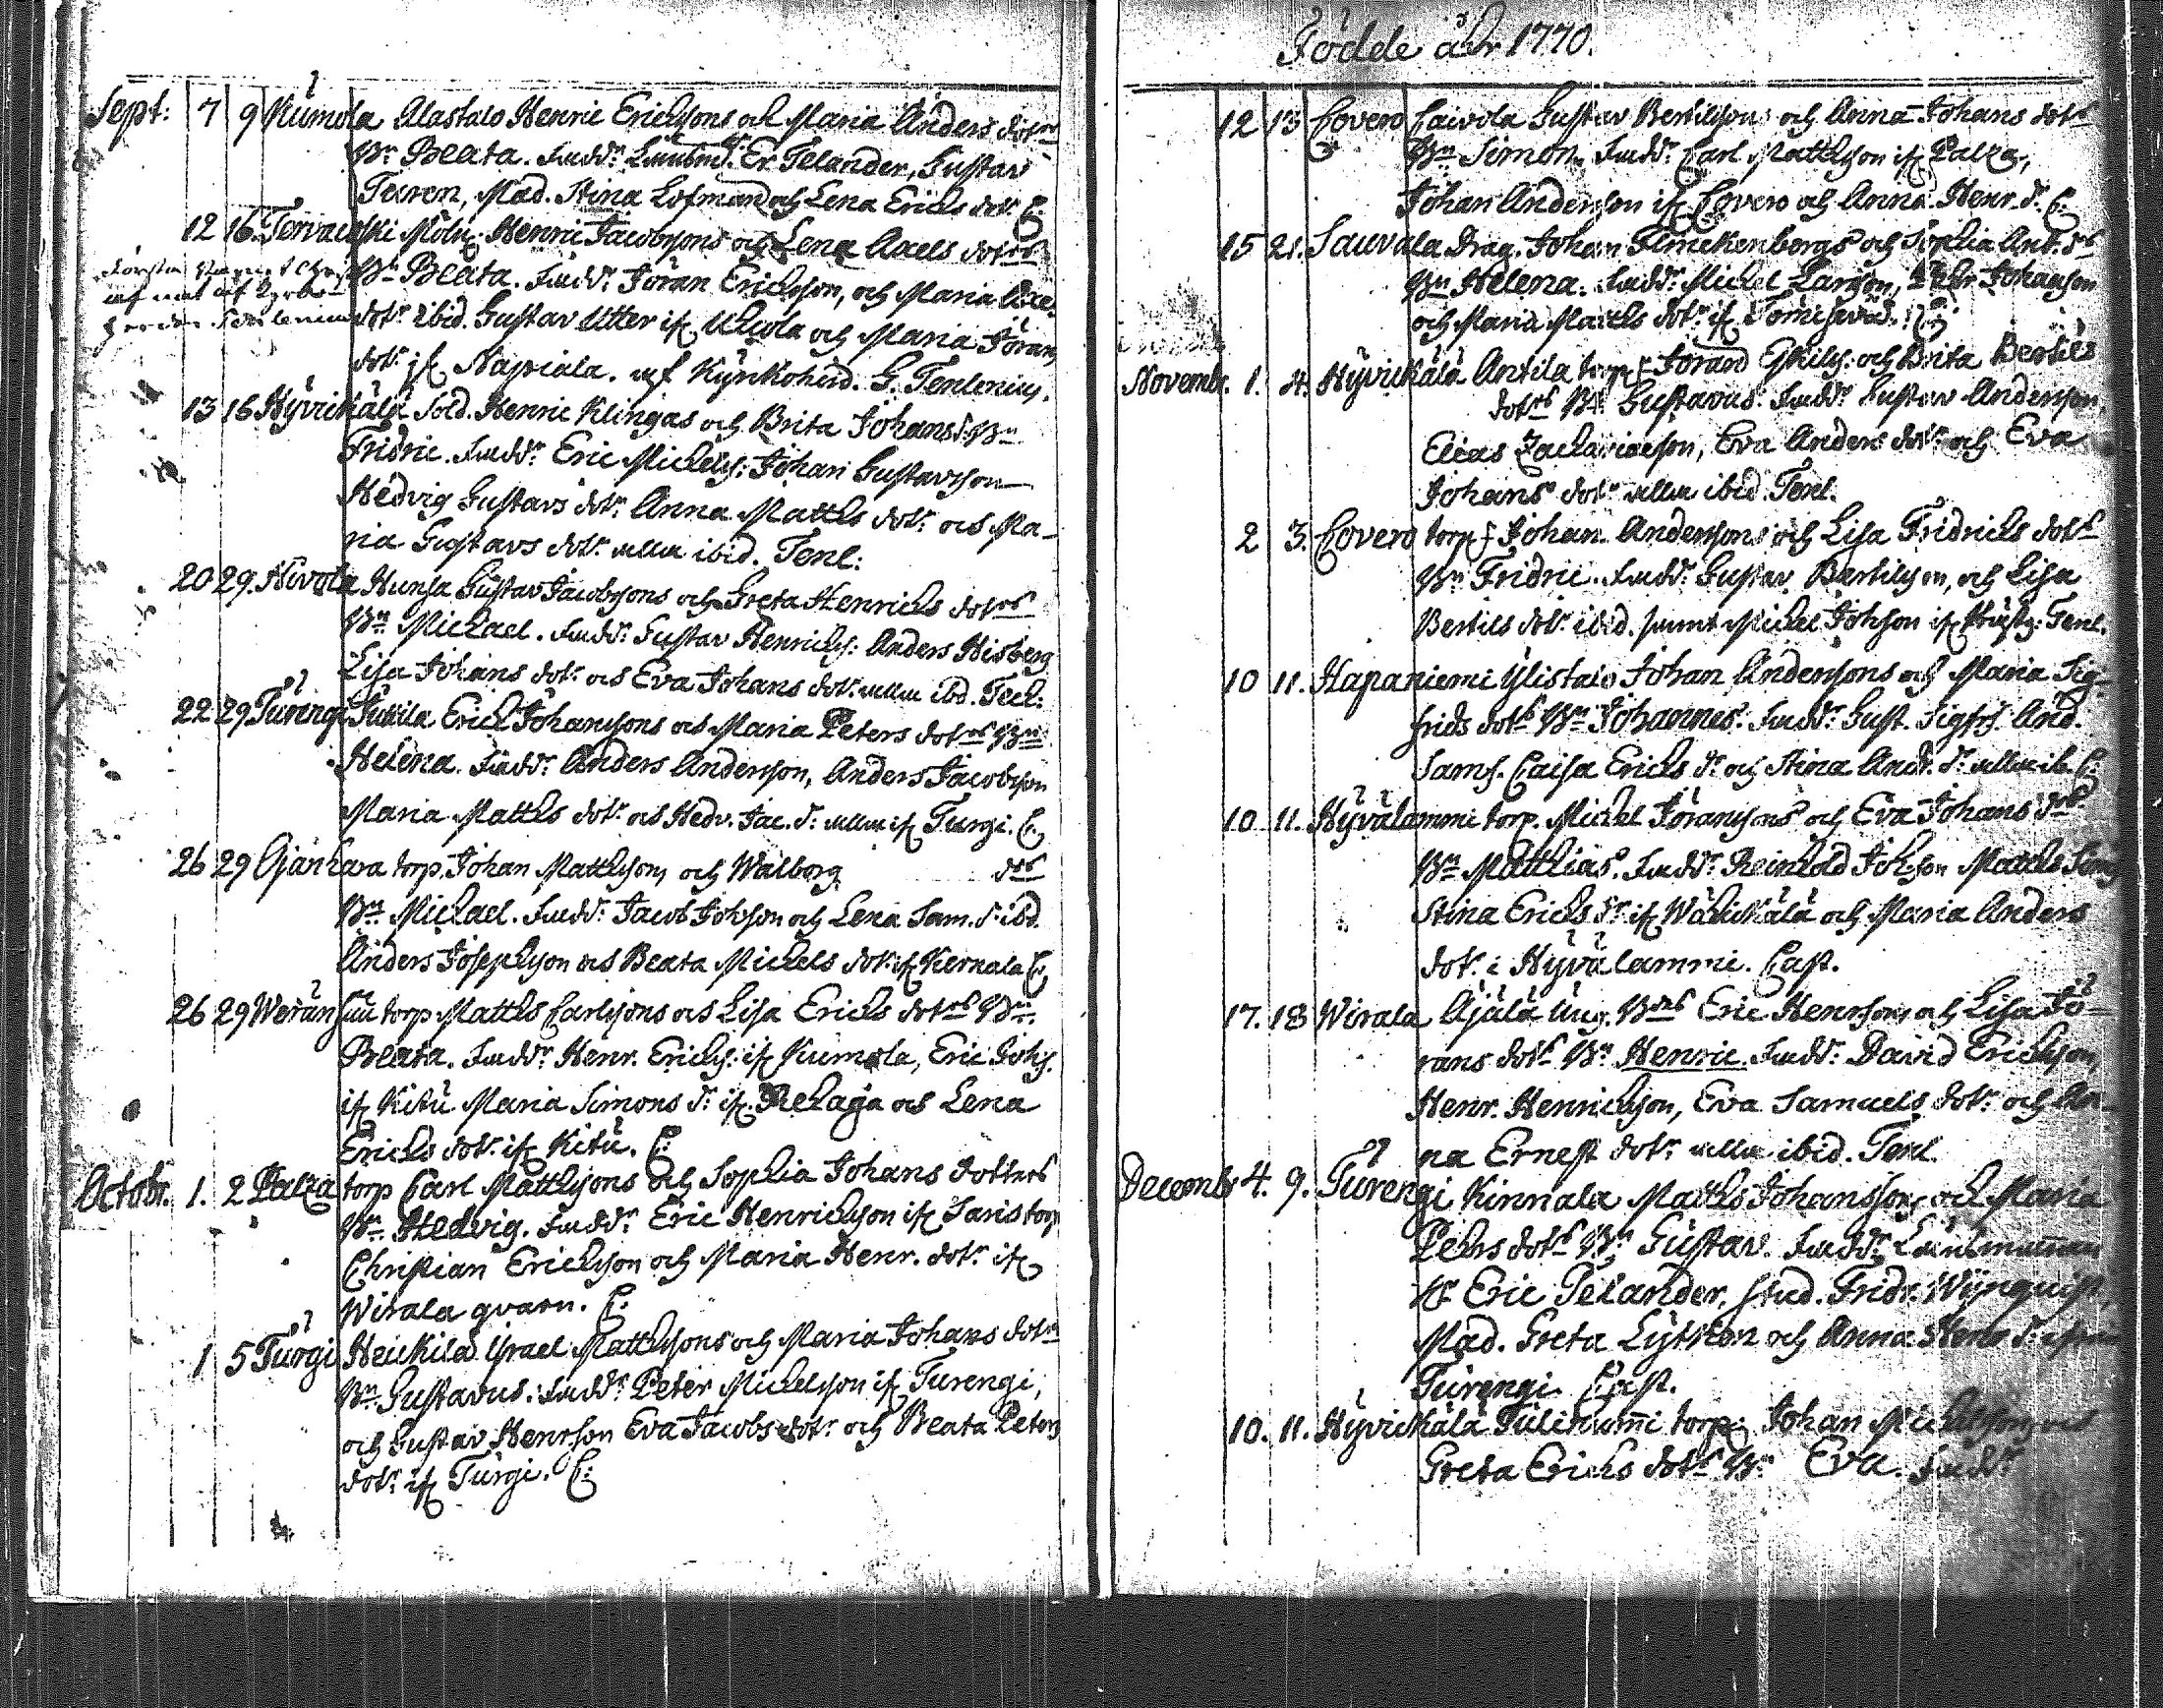 Sept: 7 9 Kumola Alastalo Henric Erichsons och Maria Anders dotrs
Bn Beata. Fadd: Länsm. Er. Telander, Gustav
Turen, Mad. Stina Lofman och Lena Erichs dotr. C.
12 16. Tervaick Möln. Henric Jacobsons och Lena Axels dotrs
Bn Beata. Fadd: Jöran Erichsson, och Maria Axe-
dotr ibid. Gustav Utter if och Maria Jöran
dotr if Napiala. af Kyrkoherd. G. Tenlenius.
13 16 Hyvickälä Sold. Henric Klingas och Brita Johansd. Bn
Fridric. Fadd: Eric Michels: Johan Gustavson
Hedvig Gustavs dotr: Anna Matths dotr: och Ma-
ria Gustavs dotr alla ibid. Tenl:
20 29. Nivola Hunsa Gustav Jacobsons och Greta Henrichs dotrs
Bn Michael. Fadd: Gustav Henrichs: Anders Hisberg
Lisa Johans dotr och Eva Johans dotr alla ibd. Tecl:
22 29 Türengi Erich Johanssons och Maria Peters dotrs Bn
Helena. Fadd: Anders Andersson, Anders Jacobson
Maria Matths dotr och Hedv. Jac. dr alla if Turgi. C.
26 29 Ojanhara torp. Johan Matthsons och Walborg dotrs
Bn Michael. Fadd: Jacob Johson och Lena Sam. d. ibd.
Anders Josephson och Beata Michels dotr if Kernala C.
26 29 torp Matths Carlsons och Lisa Erichs dotrs Bn
Beata. Fadd: Henr. Erichs: if Kumola, Eric Johs.
if Kitü Maria Simons dr if och Lena
Erichs dotr if Kitü. C:
Octobr. 1. 2 Palza torp Carl Matthsons och Sophia Johans dotters
Bn Hedvig. Fadd: Eric Henrichson if Saris torp
Christian Erichson och Maria Henr. dotr if
Wirala qvarn. C:
1 5 Türgi Heickilä Israel Matthsons och Maria Johans dotrs
Bn Gustavus. Fadd: Peter Michelsson if Turengi,
och Gustav Henrson Eva Jacobs dotr och Beata Peters
dotr if Turgi. C:
Födde åhr 1770.
12 13 Covero Caivola Gustav Bertilsons och Anna Johans dotrs
Bn Simon. Fadd: Carl Matthson if Palza,
Johan Anderson if Covero och Anna Henr. dr C.
15 21. Sauvala Drag. Johan Flinckenbergs och Sophia And. drs
Bn Helena. Fadd: Michel Larson, Johanson
och Maria Matths dotr if
Novembr. 1. 4. Hyvickälä Antila torp: Jöran och Brita Bertils
dotrs Bn Gustavus. Fadd: Gustav Anderson,
Elias Zachariaeson, Eva Anders dotr och Eva
Johans dotr alla ibid. Tenl.
2 3. Covero torp: Johan Andersons och Lisa Fridrichs dotrs
Bn Fridric. Fadd: Gustav Bertilson, och Lisa
Bertils dotr ibid. samt Michel Johson if Tenl.
10 11. Hapaniemi Ylistalo Johan Andersons och Maria Sig-
frids dotrs Bn Johannes. Fadd: Gust. Sigfrs. And.
Sams. Caisa Erichs dr och Stina And. dr alla ib. C:
10 11. Hyvälammi torp. Michel Jöransons och Eva Johans drs
Bn Matthias. Fadd: Reinhold Johson Matths Sims
Stina Erichs dr if Wähickälä och Maria Anders
dotr i Hyvälammi. Cap.
17. 18 Wirala Äjälä Ung. Bdes Eric Henrsons och Lisa Jö-
rans dotrs Bn Henric. Fadd: David Erichson,
Henr. Henrichson, Eva Samuels dotr och An-
na Ernest dotr alla ibid. Tenl.
Decembr 4. 9. Türengi Kinnala Matths Johanssons och Maria
Pehrs dotrs Bn Gustav. Fadd: Länsmannen
Hr Eric Telander, Stud. Fridr. Winquist,
Mad. Greta Lytken och Anna Henr. dr
Türengi. Cap.
10. 11. Hyvickälä torp: Johan Michelsons och
Greta Erichs dotrs Bn Eva. Fadd: